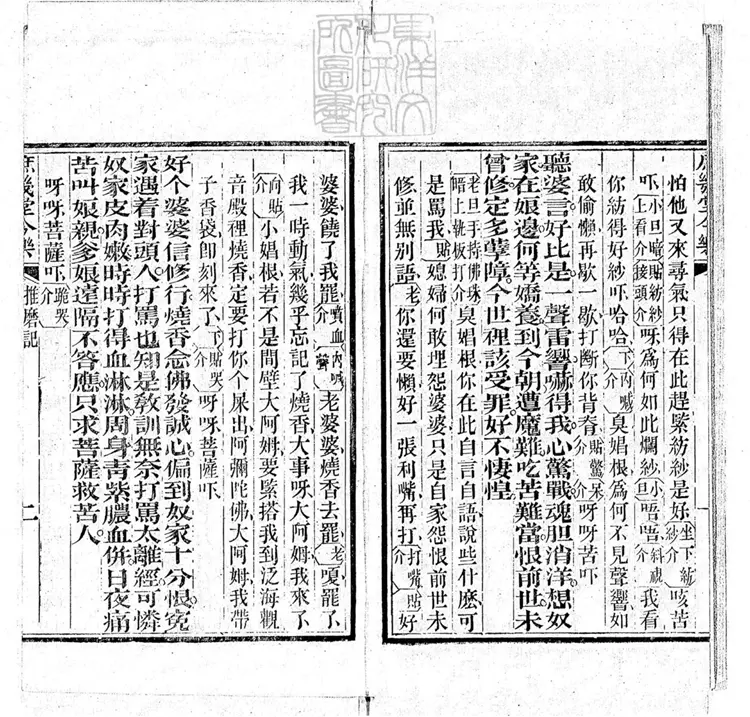 東洋文化研究所圖書
庶幾堂今樂
怕他又來尋氣只得在此趕緊紡紗是好坐下紡紗介咳苦
吓小旦暗上看介貼紡紗接頭介呀爲何如此爛紗小旦唔唔斜視介我看
你紡得好紗吓哈哈下介內喊臭娼根爲何不見聲響如
敢偷懶再歇一歇打斷你背脊貼驚呆介呀呀苦吓
聽婆言好比是一聲雷響嚇得我心驚戰魂胆消洋想奴
家在娘邊何等嬌養到今朝遭魔難吃苦難當恨前世未
曾修定多孽障今世裡該受罪好不悽惶
老旦手持佛珠暗上執板打介臭娼根你在此自言自語說些什麽可
是罵我貼媳婦何敢埋怨婆婆只是自家怨恨前世未
修並無別語老你還要懶好一張利嘴再打打嘴介貼好
婆婆饒了我罷噴血介內喊聲老婆婆燒香去罷老嗄罷了
我一時動氣幾乎忘記了燒香大事呀大阿姆我來了
向貼介小娼根若不是間壁大阿姆要緊搭我到泛海觀
音殿裡燒香定要打你个屎出阿彌陀佛大阿姆我帶
子香袋卽刻來了下介貼哭介呀呀菩薩吓
好个婆婆信修行燒香念佛發誠心偏到奴家十分恨寃
家遇着對頭人打罵也知是教訓無奈打罵太離經可憐
奴家皮肉嫩時時打得血淋淋周身靑紫膿血倂日夜痛
苦叫娘親爹娘遠隔不答應只求菩薩救苦人
呀呀菩薩吓跪哭介
庶幾堂今樂 推磨記 二